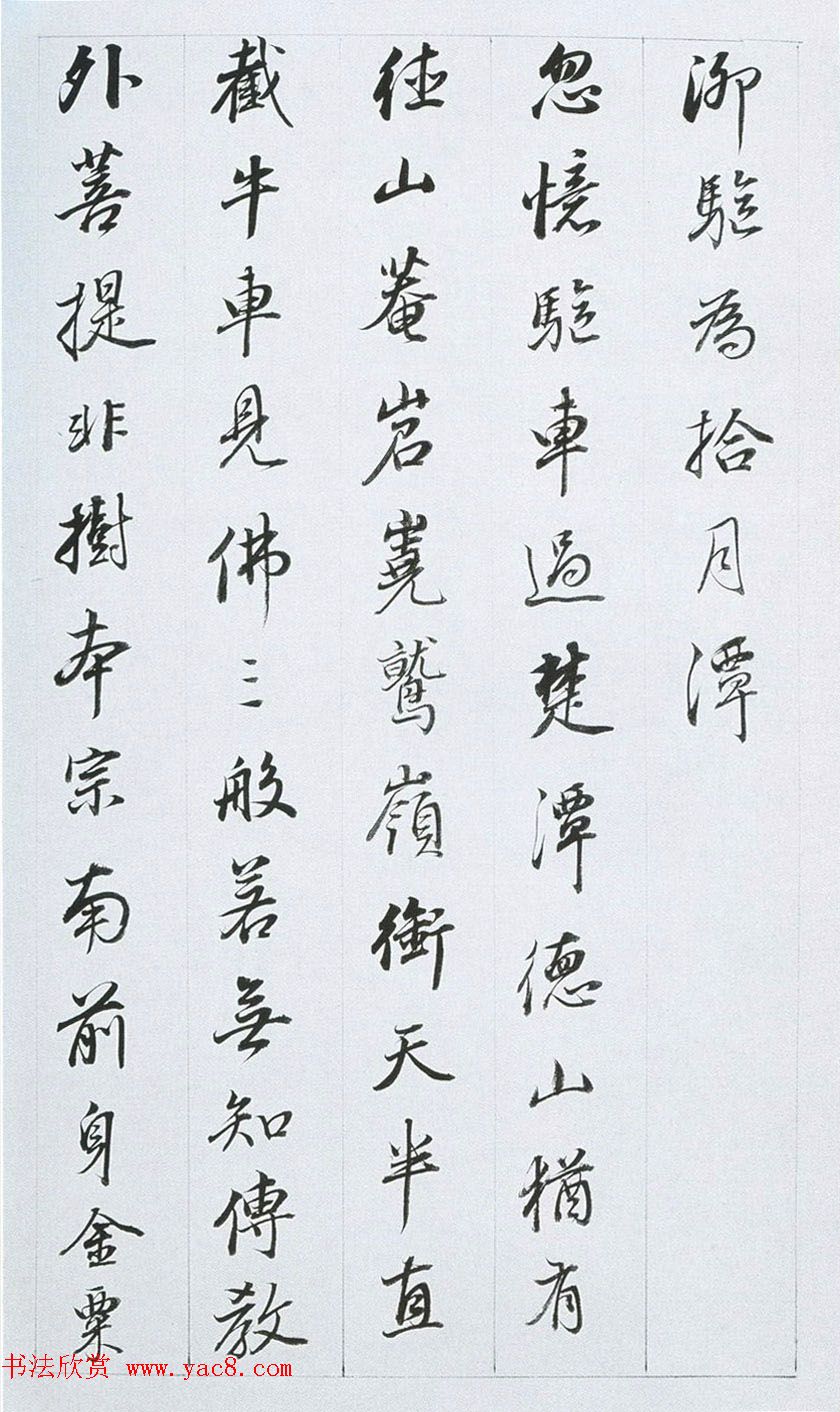 泖駈為拾月潭
忽憶駈車過楚潭德山猶有
住山菴岧嶤鷲嶺銜天半直
截牛車見佛三般若無知傳教
外菩提非樹本宗南前身金粟
书法欣赏 www.yac8.com